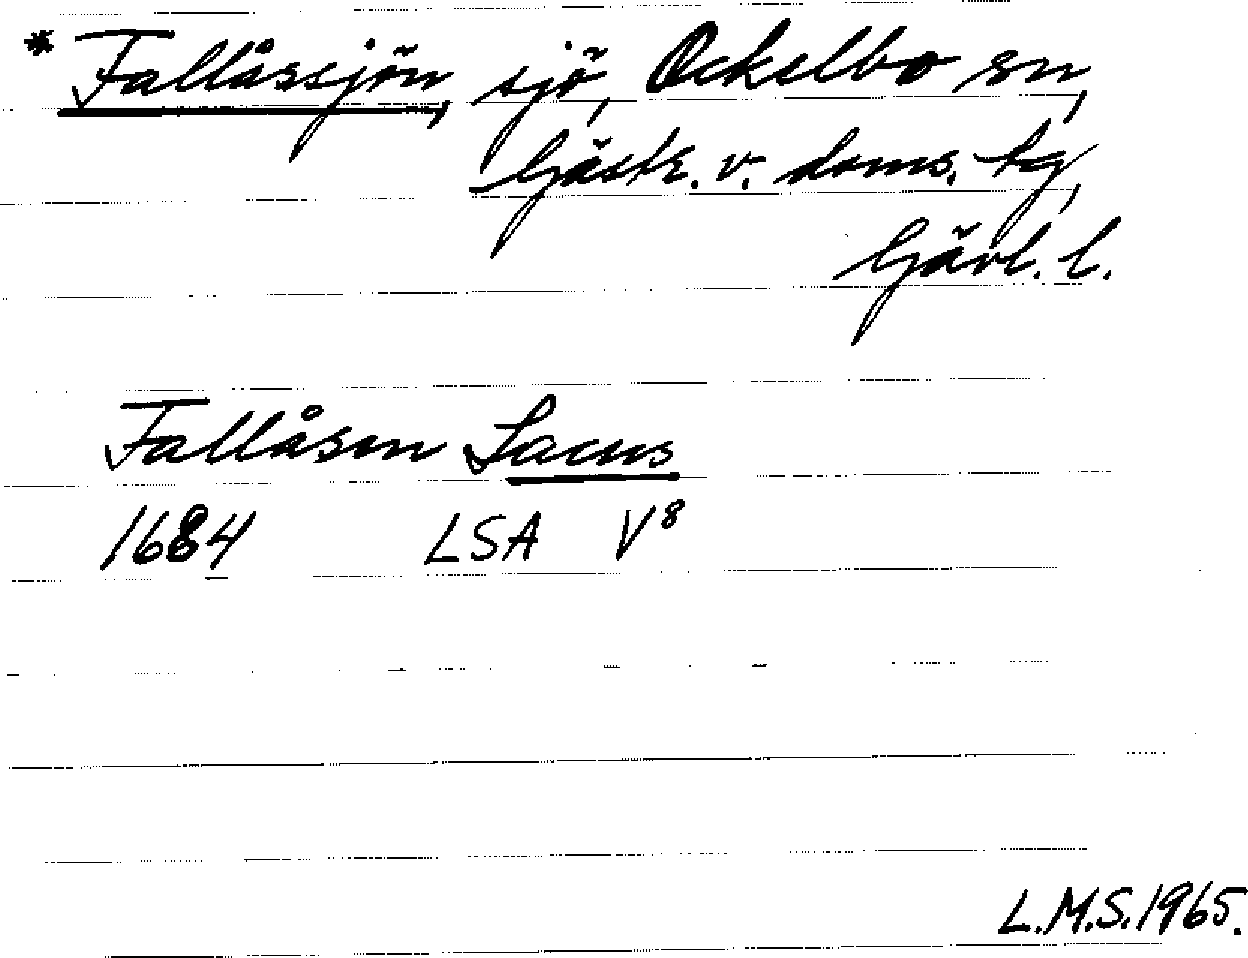 * Fallåssjön, sjö, Ockelbo sn,
Gästr. v. doms. tg,
Gävl. l.
Fallåsen Lacus
1684 LSA V⁸
L.M.S. 1965.